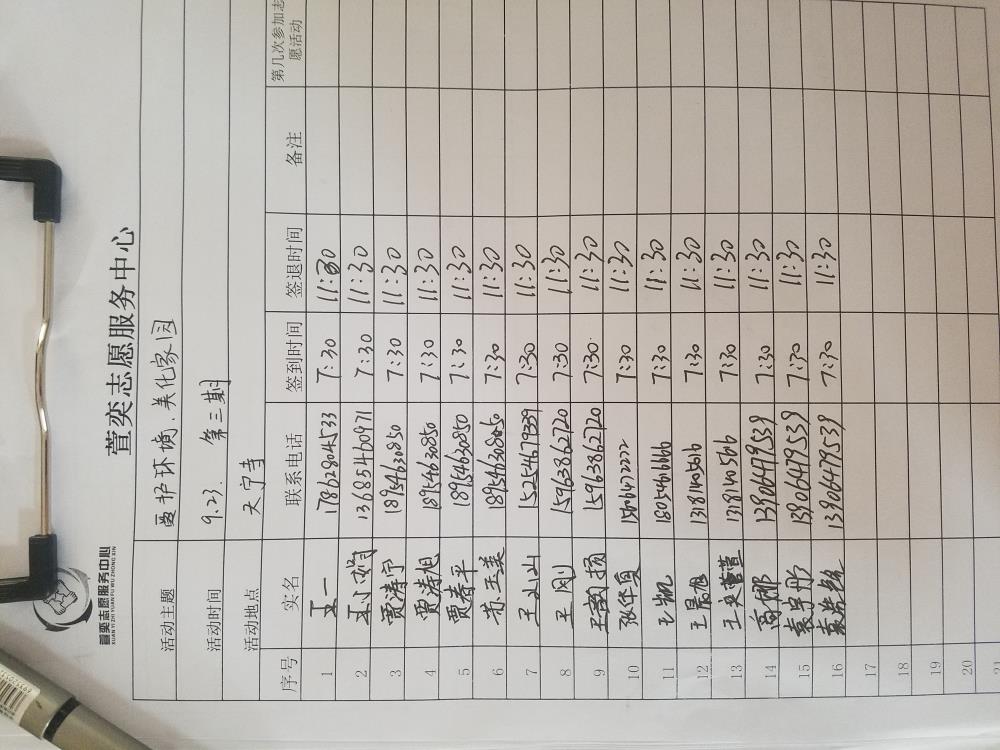 萱奕志愿服务中心
XUAN YI ZHI YUAN FU WU ZHONG XIN
萱奕志愿服务中心
活动主题 爱护环境.美化家园
活动时间 9.23. 第三期
活动地点 天宁寺
序号 实名 联系电话 签到时间 签退时间 备注 第几次参加志愿活动
1 王一 17862804533 7:30 11:30
2 王小娟 13685460971 7:30 11:30
3 贾涛宁 18954630850 7:30 11:30
4 贾涛旭 18954630850 7:30 11:30
5 贾春平 18954630850 7:30 11:30
6 苏玉美 18954630850 7:30 11:30
7 王山山 15254679339 7:30 11:30
8 王刚 15963862720 7:30 11:30
9 王敬扬 15963862720 7:30 11:30
10 张华贞 15006472222 7:30 11:30
11 王凯 18054666666 7:30 11:30
12 王晨旭 13181140566 7:30 11:30
13 王奕萱萱 13181140566 7:30 11:30
14 高娜 13906479539 7:30 11:30
15 13906479539 7:30 11:30
16 13906479539 7:30 11:30
17
18
19
20
21